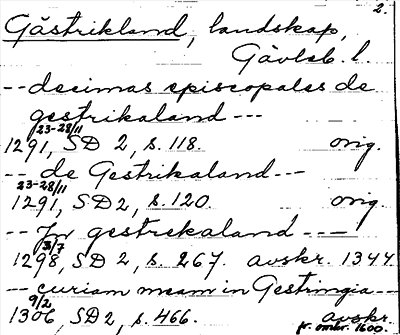 2.
Gästrikland, landskap,
Gävleb. l.
-- decimas episcopales de
gestrikaland ---
23-28/11
1291, SD 2, s. 118. orig.
-- de Gestrikaland---
23-28/11
1291, SD2, s. 120. orig.
-- Jn gestrekaland ---
3/7
1298, SD 2, s. 267. avskr. 1344
-- curiam meam in Gestringia --
9/2
1306, SD2, s. 466. avskr.
fr. omkr. 1600.